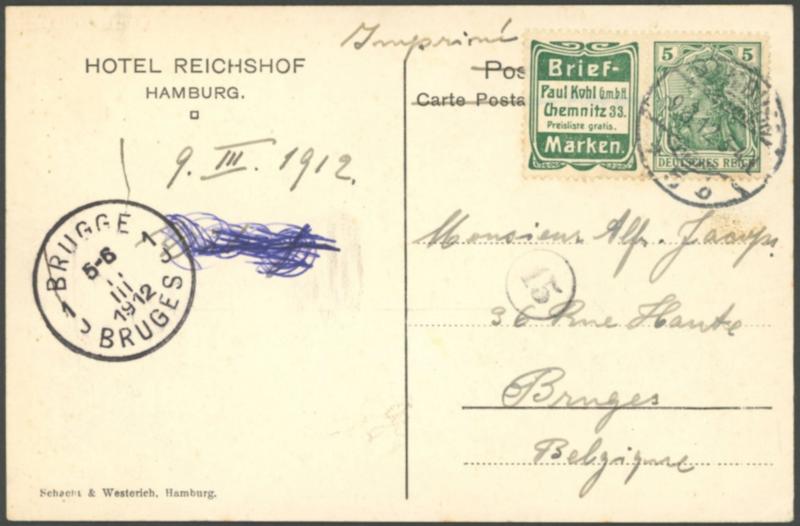 HOTEL REICHSHOF
HAMBURG.
9. III. 1912.
BRUGGE
1 1
5-6
III
1912
BRUGES
Schacht & Westerich, Hamburg.
Imprimé
Pos
Carte Posta
Brief-
Paul Kohl G.m.b.H.
Chemnitz 33.
Preisliste gratis.
Marken.
5 5
DEUTSCHES REICH
Monsieur Alf.
15
36 Rue Haute
Bruges
Belgique